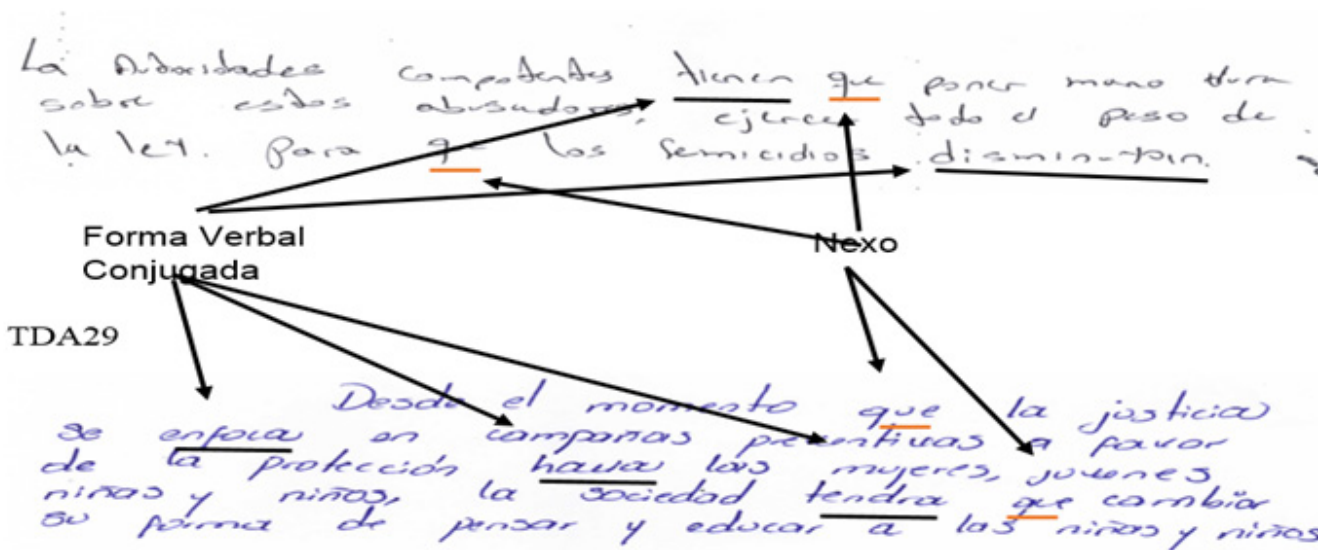 La Autoridades competentes tienen que poner mano dura
sobre estos abusadores, ejercer todo el peso de
la ley. para q los femicidios disminuyan.
Forma Verbal
Conjugada
Nexo
TDA29
Desde el momento que la justicia
se enfoca en campañas preventivas a favor
de la protección hacia las mujeres, jovenes
niñas y niños, la sociedad tendra que cambiar
su forma de pensar y educar a las niñas y niños